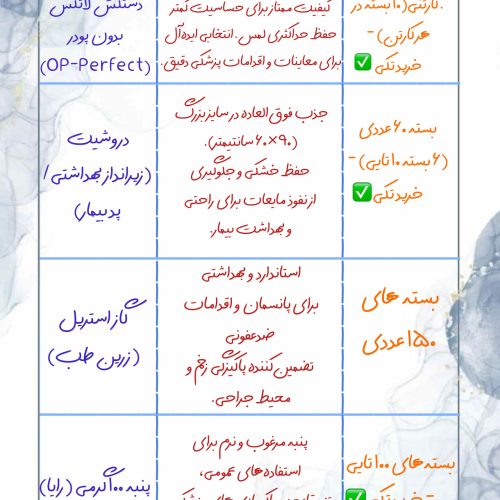 کارتنی(۱۰ بسته در
هر کارتن) -
خرید تکی ✅
کیفیت ممتاز برای حساسیت کمتر
حفظ حداکثری لمس. انتخابی ایده‌آل
برای معاینات و اقدامات پزشکی دقیق.
دستکش لاتکس
بدون پودر
(OP-Perfect)
بسته ۶۰ عددی
(۶ بسته ۱۰ تایی) -
خرید تکی ✅
جذب فوق العاده در سایز بزرگ
(۹۰×۶۰ سانتیمتر).
حفظ خشکی و جلوگیری
از نفوذ مایعات برای راحتی
و بهداشت بیمار.
دروشیت
(زیرانداز بهداشتی/
پد بیمار)
بسته های
۱۵۰ عددی
استاندارد و بهداشتی
برای پانسمان و اقدامات
ضدعفونی
تضمین کننده پاکیزگی زخم و
محیط جراحی.
گاز استریل
(زرین طب)
بسته های ۱۰۰ تایی
پنبه مرغوب و نرم برای
استفاده های عمومی،
پنبه ۱۰۰ گرمی (رایا)